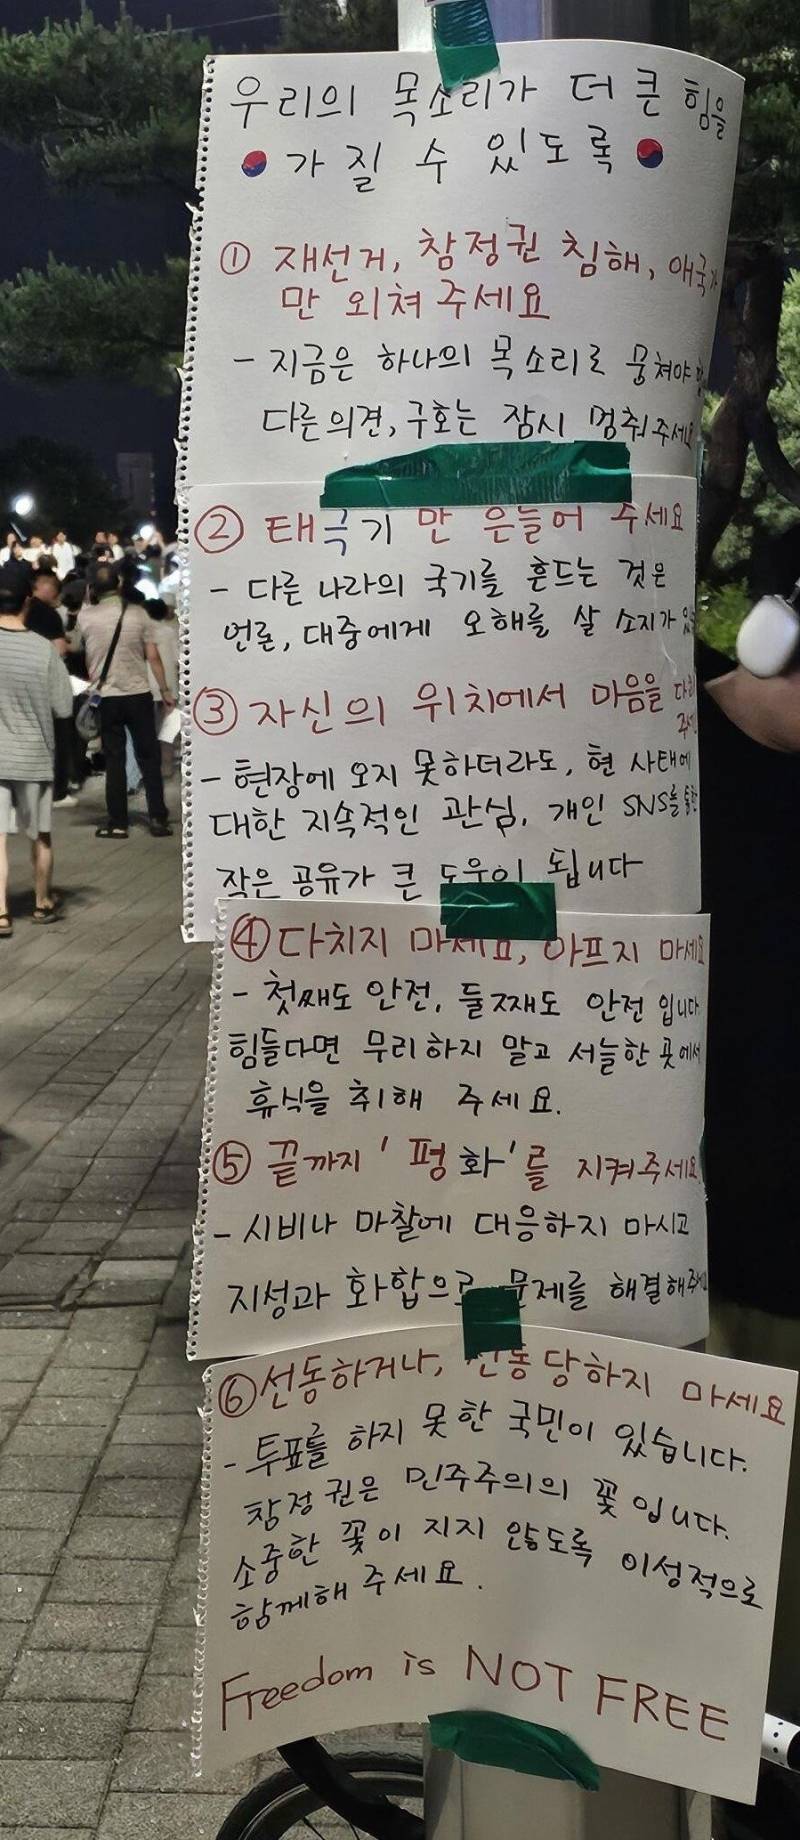 우리의 목소리가 더 큰 힘을
가질 수 있도록
① 재선거, 참정권 침해, 애국가
만 외쳐 주세요
- 지금은 하나의 목소리로 뭉쳐야
다른 의견, 구호는 잠시 멈춰주세요
② 태극기 만 은들어 주세요
- 다른 나라의 국기를 흔드는 것은
언론, 대중에게 오해를 살 소지가
③ 자신의 위치에서 마음을
- 현장에 오지 못하더라도, 현 사태에
대한 지속적인 관심, 개인 SNS를 통한
작은 공유가 큰 도움이 됩니다
④ 다치지 마세요, 아프지 마세요
- 첫째도 안전, 둘째도 안전 입니다
힘들다면 무리하지 말고 서늘한 곳에서
휴식을 취해 주세요.
⑤ 끝까지 '평화'를 지켜주세요
- 시비나 마찰에 대응하지 마시고
지성과 화합으로 문제를 해결해주세요
⑥ 선동하거나, 선동 당하지 마세요
- 투표를 하지 못한 국민이 있습니다.
참정권은 민주주의의 꽃입니다.
소중한 꽃이 지지 않도록 이성적으로
함께해 주세요.
Freedom is NOT FREE